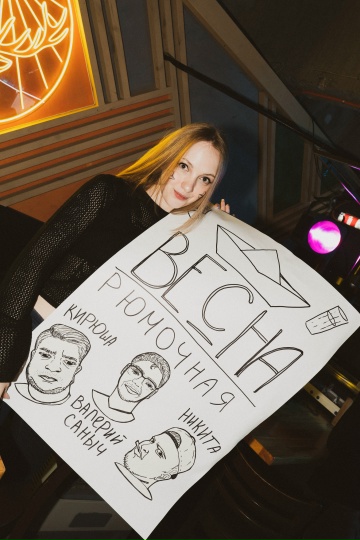 ВЕСНА
РЮМОЧНАЯ
КИРЮША
ВАЛЕРИЙ
САНЫЧ
НИКИТА